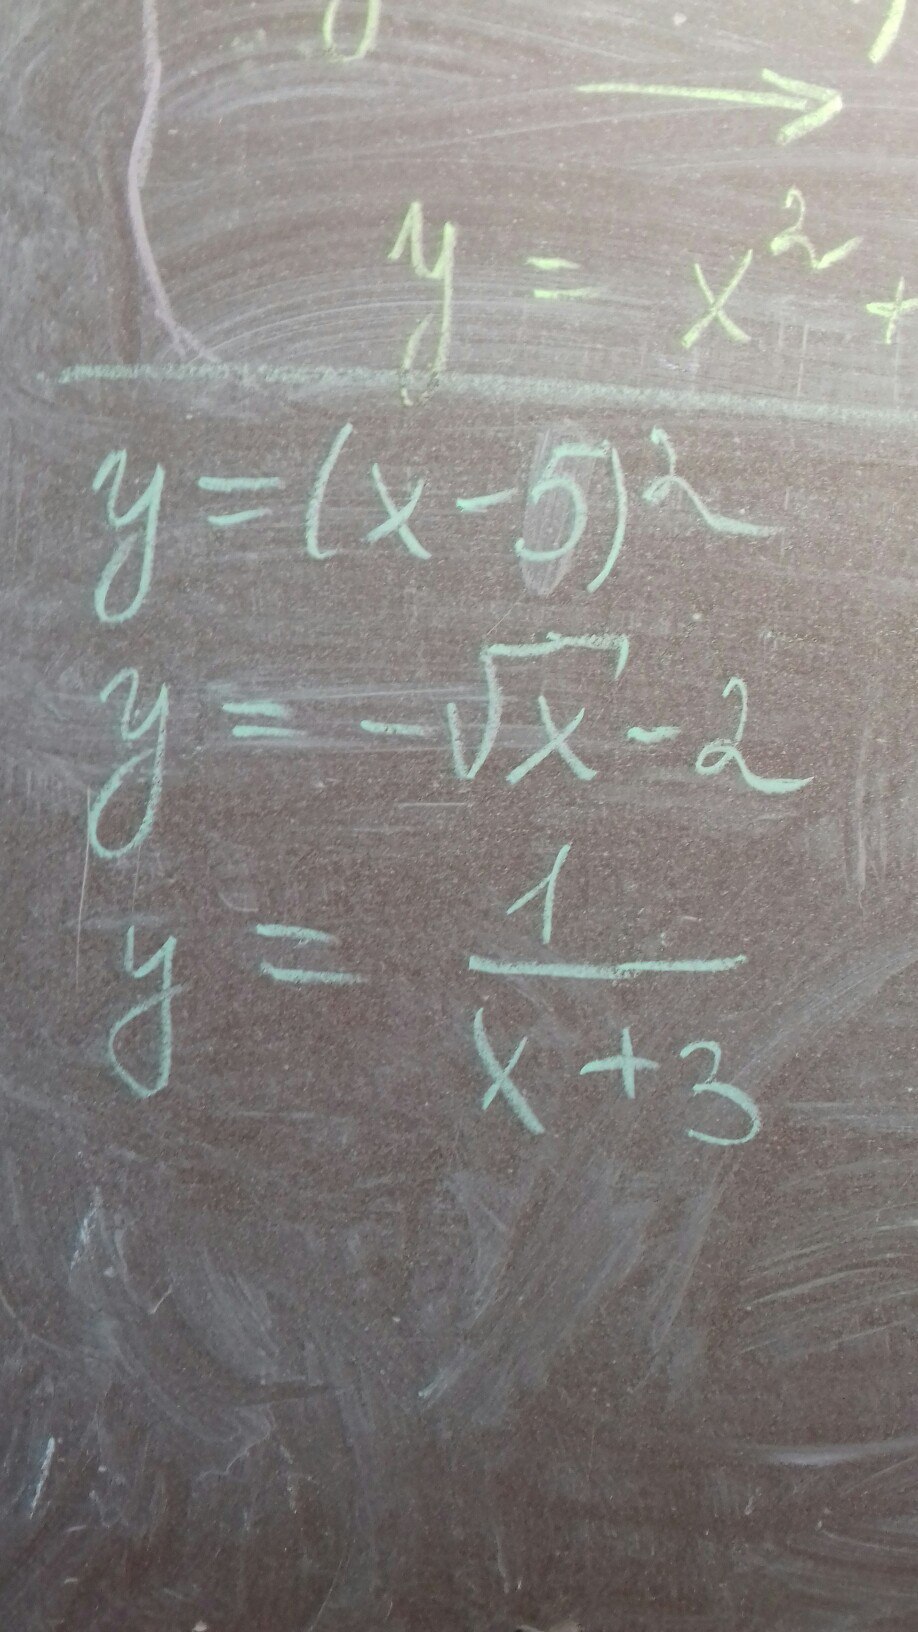 y = x² +
y = (x - 5)²
y = -√x - 2
y = 1/(x + 3)